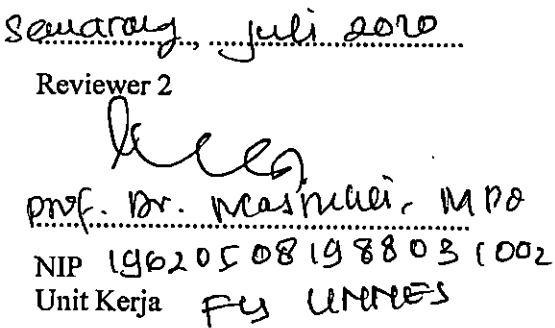 Semarang, Juli 2020
Reviewer 2
Prof. Dr. Masrukhi, M.Pd
NIP 196205081988031002
Unit Kerja FIS UNNES